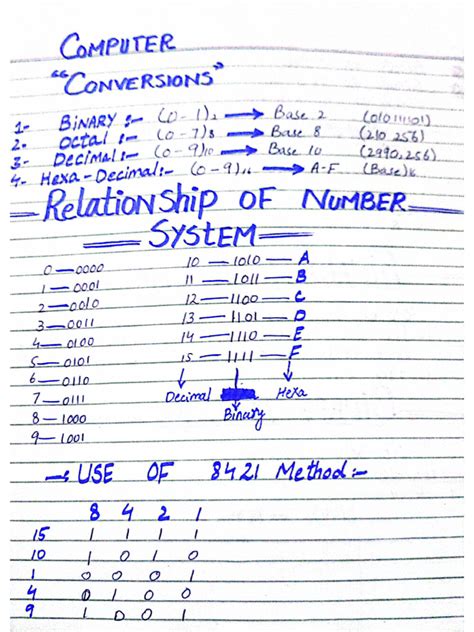 COMPUTER
"CONVERSIONS"
1- BINARY :- (0-1)2 → Base 2 (01011101)
2. Octal :- (0-7)8 → Base 8 (210,256)
3- Decimal:- (0-9)10 → Base 10 (2990,256)
4- Hexa-Decimal:- (0-9)16 → A-F (Base)16
Relationship OF NUMBER
SYSTEM
0 — 0000 10 — 1010 — A
1 — 0001 11 — 1011 — B
2 — 0010 12 — 1100 — C
3 — 0011 13 — 1101 — D
4 — 0100 14 — 1110 — E
5 — 0101 15 — 1111 — F
6 — 0110
7 — 0111 Decimal Hexa
8 — 1000 Binary
9 — 1001
→ USE OF 8421 Method:-
8 4 2 1
15 1 1 1 1
10 1 0 1 0
1 0 0 0 1
4 0 1 0 0
9 1 0 0 1